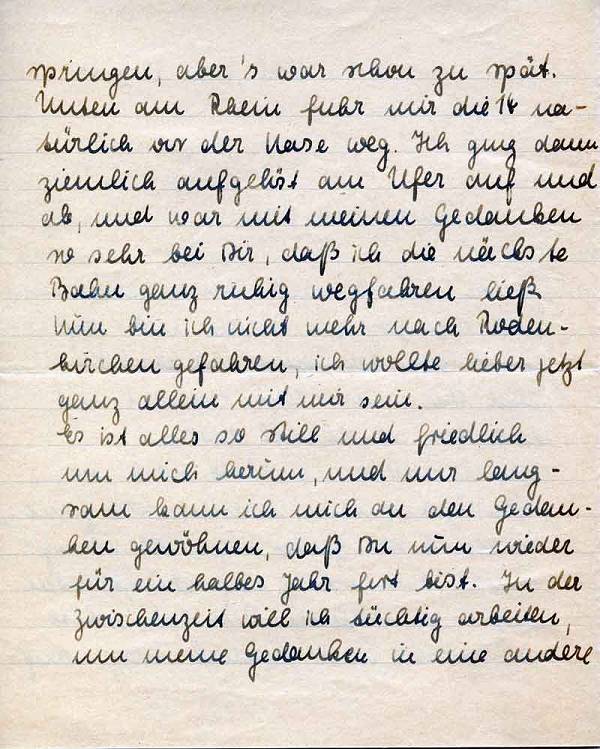 springen, aber's war schon zu spät.
Unten am Rhein fuhr mir die 14 na-
türlich vor der Nase weg. Ich ging dann
ziemlich aufgelöst am Ufer auf und
ab, und war mit meinen Gedanken
so sehr bei Dir, daß ich die nächste
Bahn ganz ruhig wegfahren ließ.
Nun bin ich nicht mehr nach Roden-
kirchen gefahren, ich wollte lieber jetzt
ganz allein mit mir sein.
Es ist alles so still und friedlich
um mich herum, und nur lang-
sam kann ich mich an den Gedan-
ken gewöhnen, daß Du nun wieder
für ein halbes Jahr fort bist. In der
Zwischenzeit will ich tüchtig arbeiten,
um meine Gedanken in eine andere